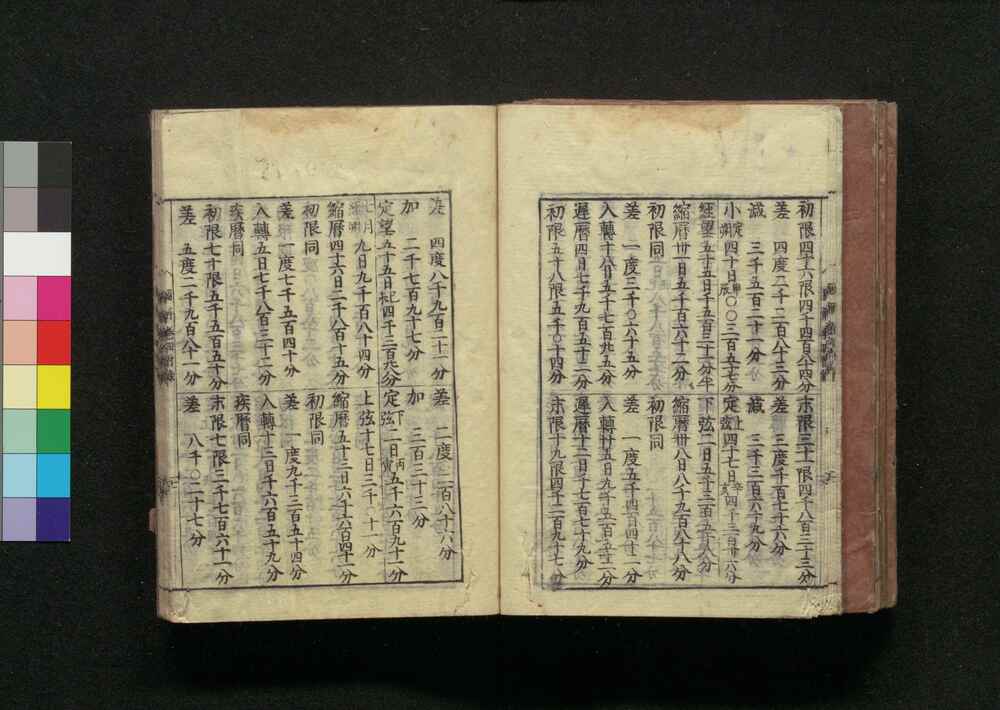 初限四十六限四千四百八十四分
差　四度二千二百八十三分
減　三千五百二十一分
小　定朔　四十日　甲辰　〇〇三百五十七分
經望五十五日千五百三十一分半
縮曆卅一日五千百六十二分
初限同
差　一度三千〇六十五分
入轉十八日五千七百九十五分
遲曆四日七千九百五十二分
初限五十八限五千〇十四分
末限三十一限四千八百二十三分
差　三度千百七十六分
減　三千三百六十九分
定弦　上　四十七日　辛亥
下弦二日五千三百五十八分
縮曆卅八日八千九百八十八分
初限同
差　一度五千四百四十一分
入轉廿五日九千五百五十二分
遲曆十二日千七百七十九分
末限十九限四千二百九十七分
差　四度八千九百二十一分
加　二千七百九十七分
定望五十五日
七月
縮曆四十六日二千八百十五分
初限同
差　一度七千五百四十分
入轉五日七千八百三十二分
疾曆同
初限七十限五千五百五十分
差　五度二千九百八十一分
差　二度一百八十六分
加　三百三十三分
定弦　下　二日　丙寅　五千六百九十一分
上弦十七日三千〇十一分
縮曆五十三日六千六百四十一分
初限同
差　一度九千三百五十四分
入轉十三日千六百五十九分
疾曆同
末限七限三千七百六十一分
差　八千〇二十七分